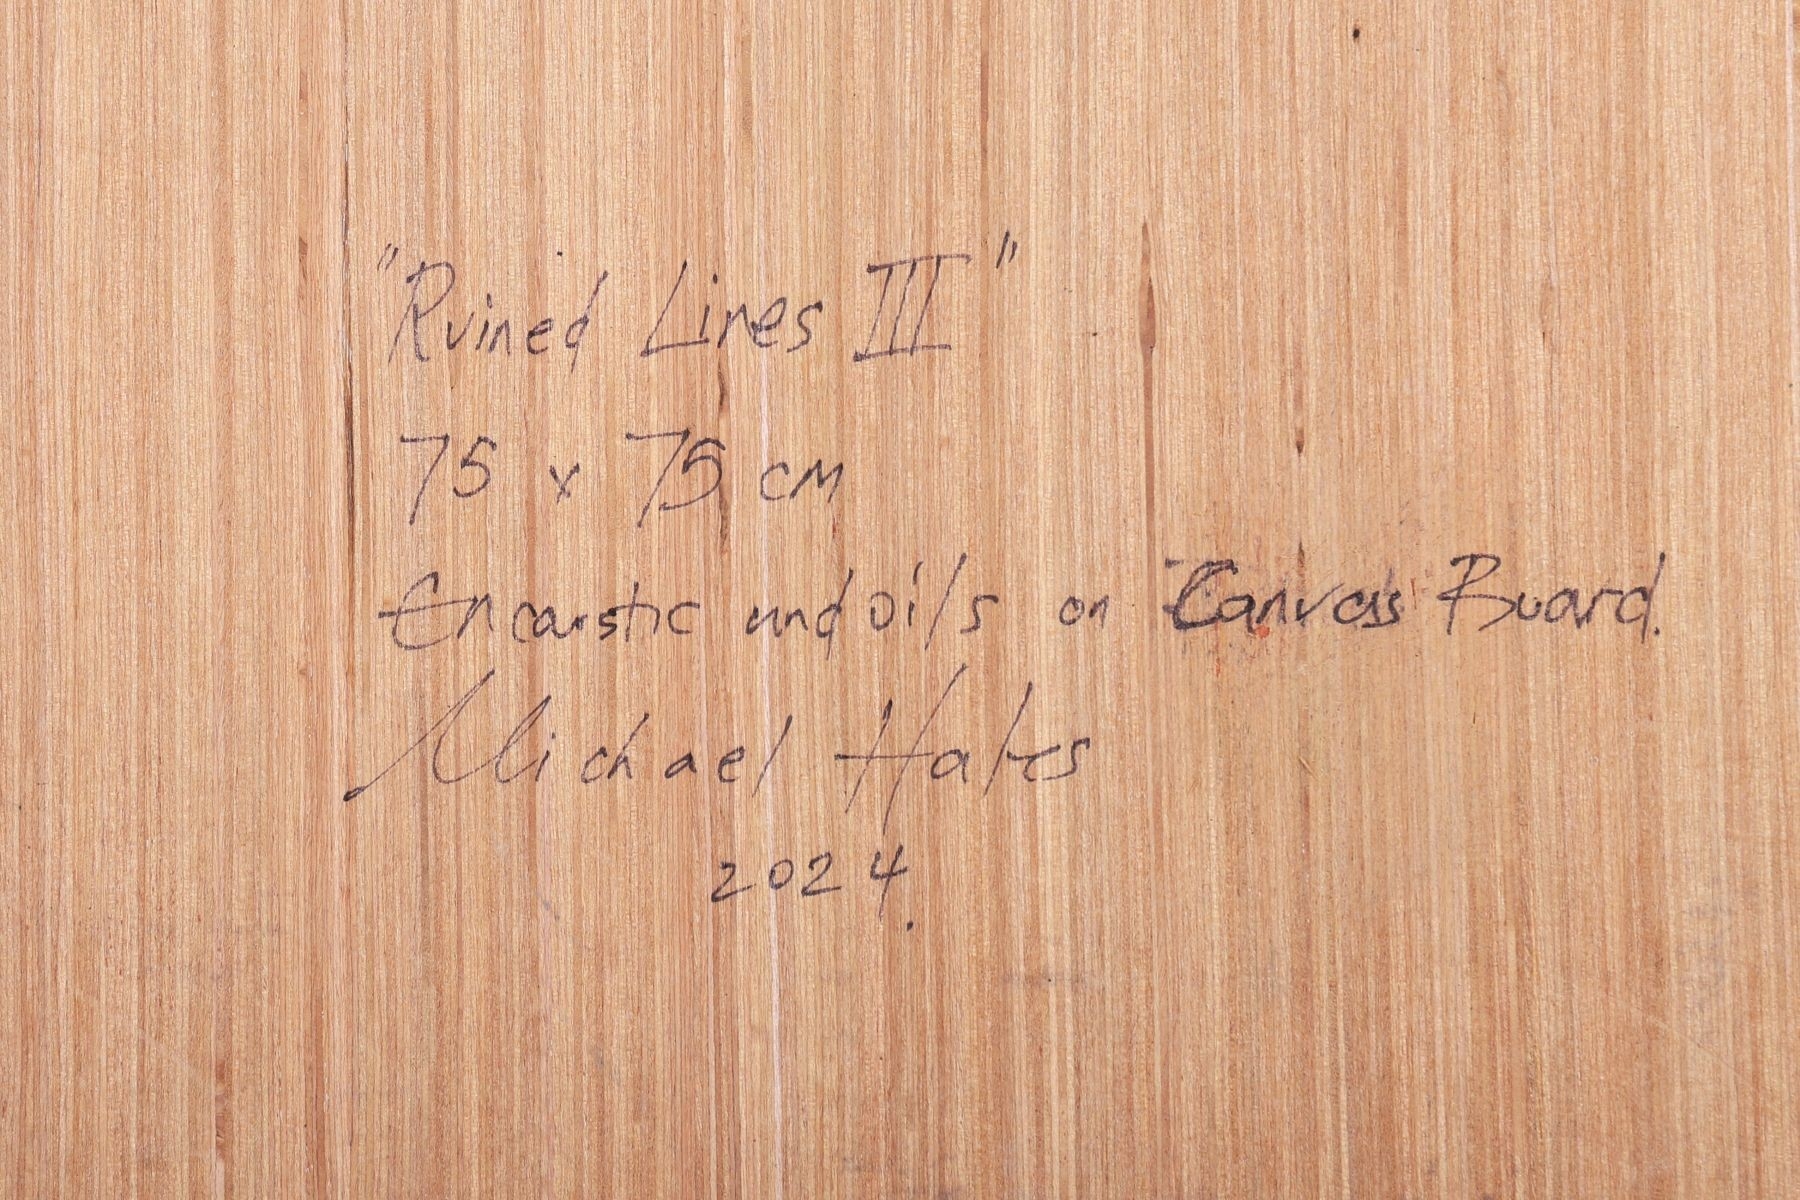 "Ruined Lines III"
75 x 75 cm
Encaustic and oils on Canvas Board.
Michael
2024.